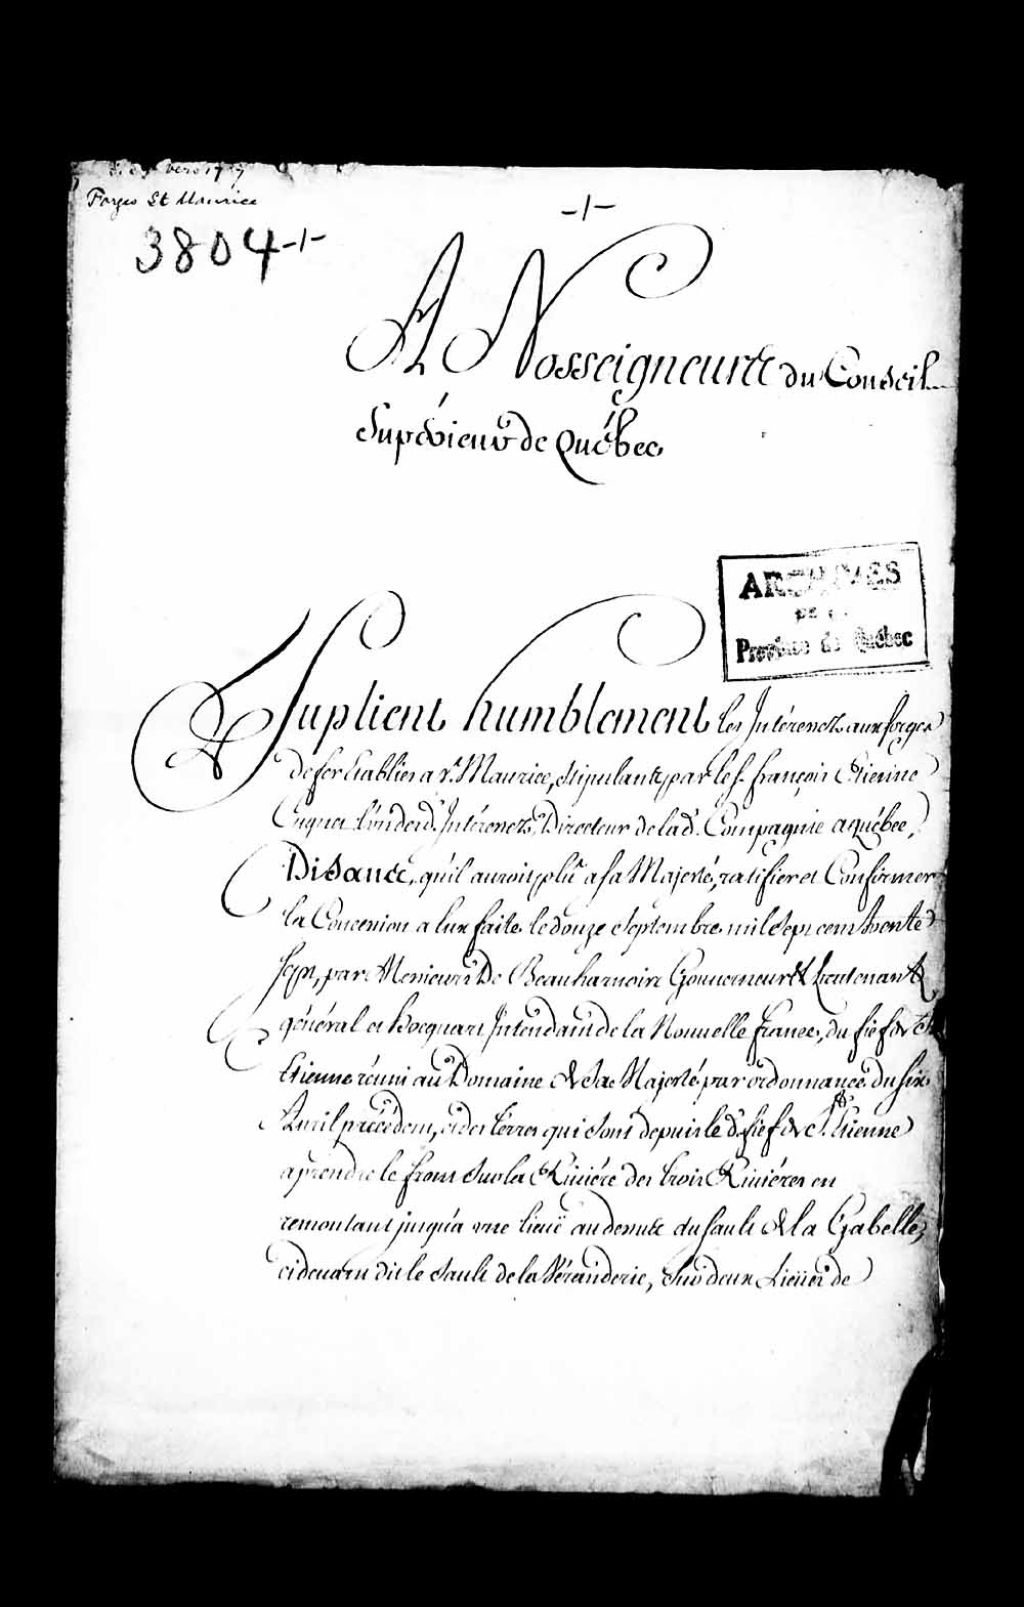 vers 17
Forges St Maurice
3804 -1-
-1-
A Nosseigneurs du Conseil
Supérieur de Québec
ARCHIVES
DE LA
Province de Québec
Suplient humblement les Intéressez aux forges
de fer Etablies a St. Maurice, stipulants par le s.r françois Etienne
Cugnet l'un desd. Intéressez, Directeur de lad. Compagnie a québec,
Disants, qu'il auroit plû a sa Majesté, ratifier et Confirmer
la Concession a eux faite le douze Septembre mil sept cent trente
sept, par Messieurs De Beauharnois Gouverneur & Lieutenant
général et hocquart Intendant de la Nouvelle france, du fief de St
Etienne réuni au Domaine de Sa Majesté par ordonnance du six
Avril précédent, et des terres qui sont depuis le d. fief de St. Etienne
a prendre le front sur la Riviére des trois Riviéres en
remontant jusqu'a une lieuë au dessus du sault de la Gabelle,
cidevant dit le Sault de la Véranderie, sur deux Lieües de